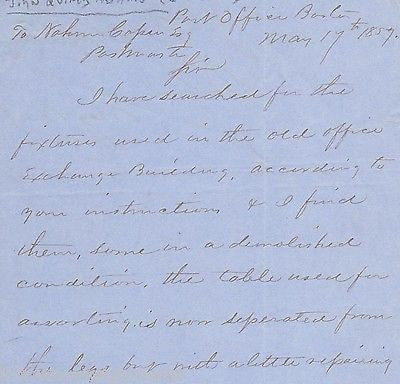 Post Office Boston
To Nahum Capen Esq May 17th 1859.
Postmaster
Sir
I have searched for the
fixtures used in the old office
Exchange Building, according to
your instructions & I find
them, some in a demolished
condition, the table used for
assorting, is now seperated from
the legs but with a little repairing